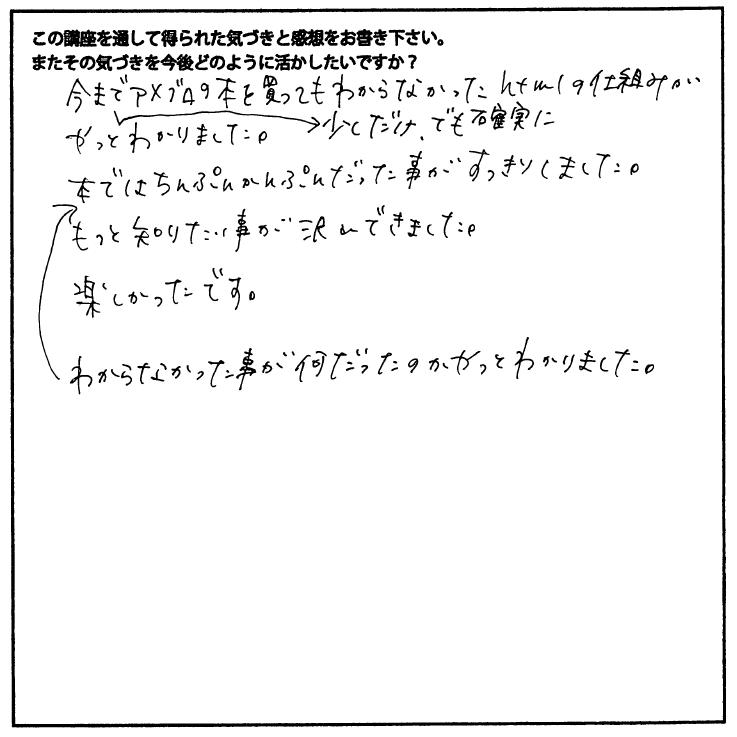 この講座を通して得られた気づきと感想をお書き下さい。
またその気づきを今後どのように活かしたいですか？
今までアメブロの本を買ってもわからなかったhtmlの仕組みが
やっとわかりました。
少しだけ、でも確実に
本ではちんぷんかんぷんだった事がすっきりしました。
もっと知りたい事が沢山できました。
楽しかったです。
わからなかった事が何だったのかやっとわかりました。